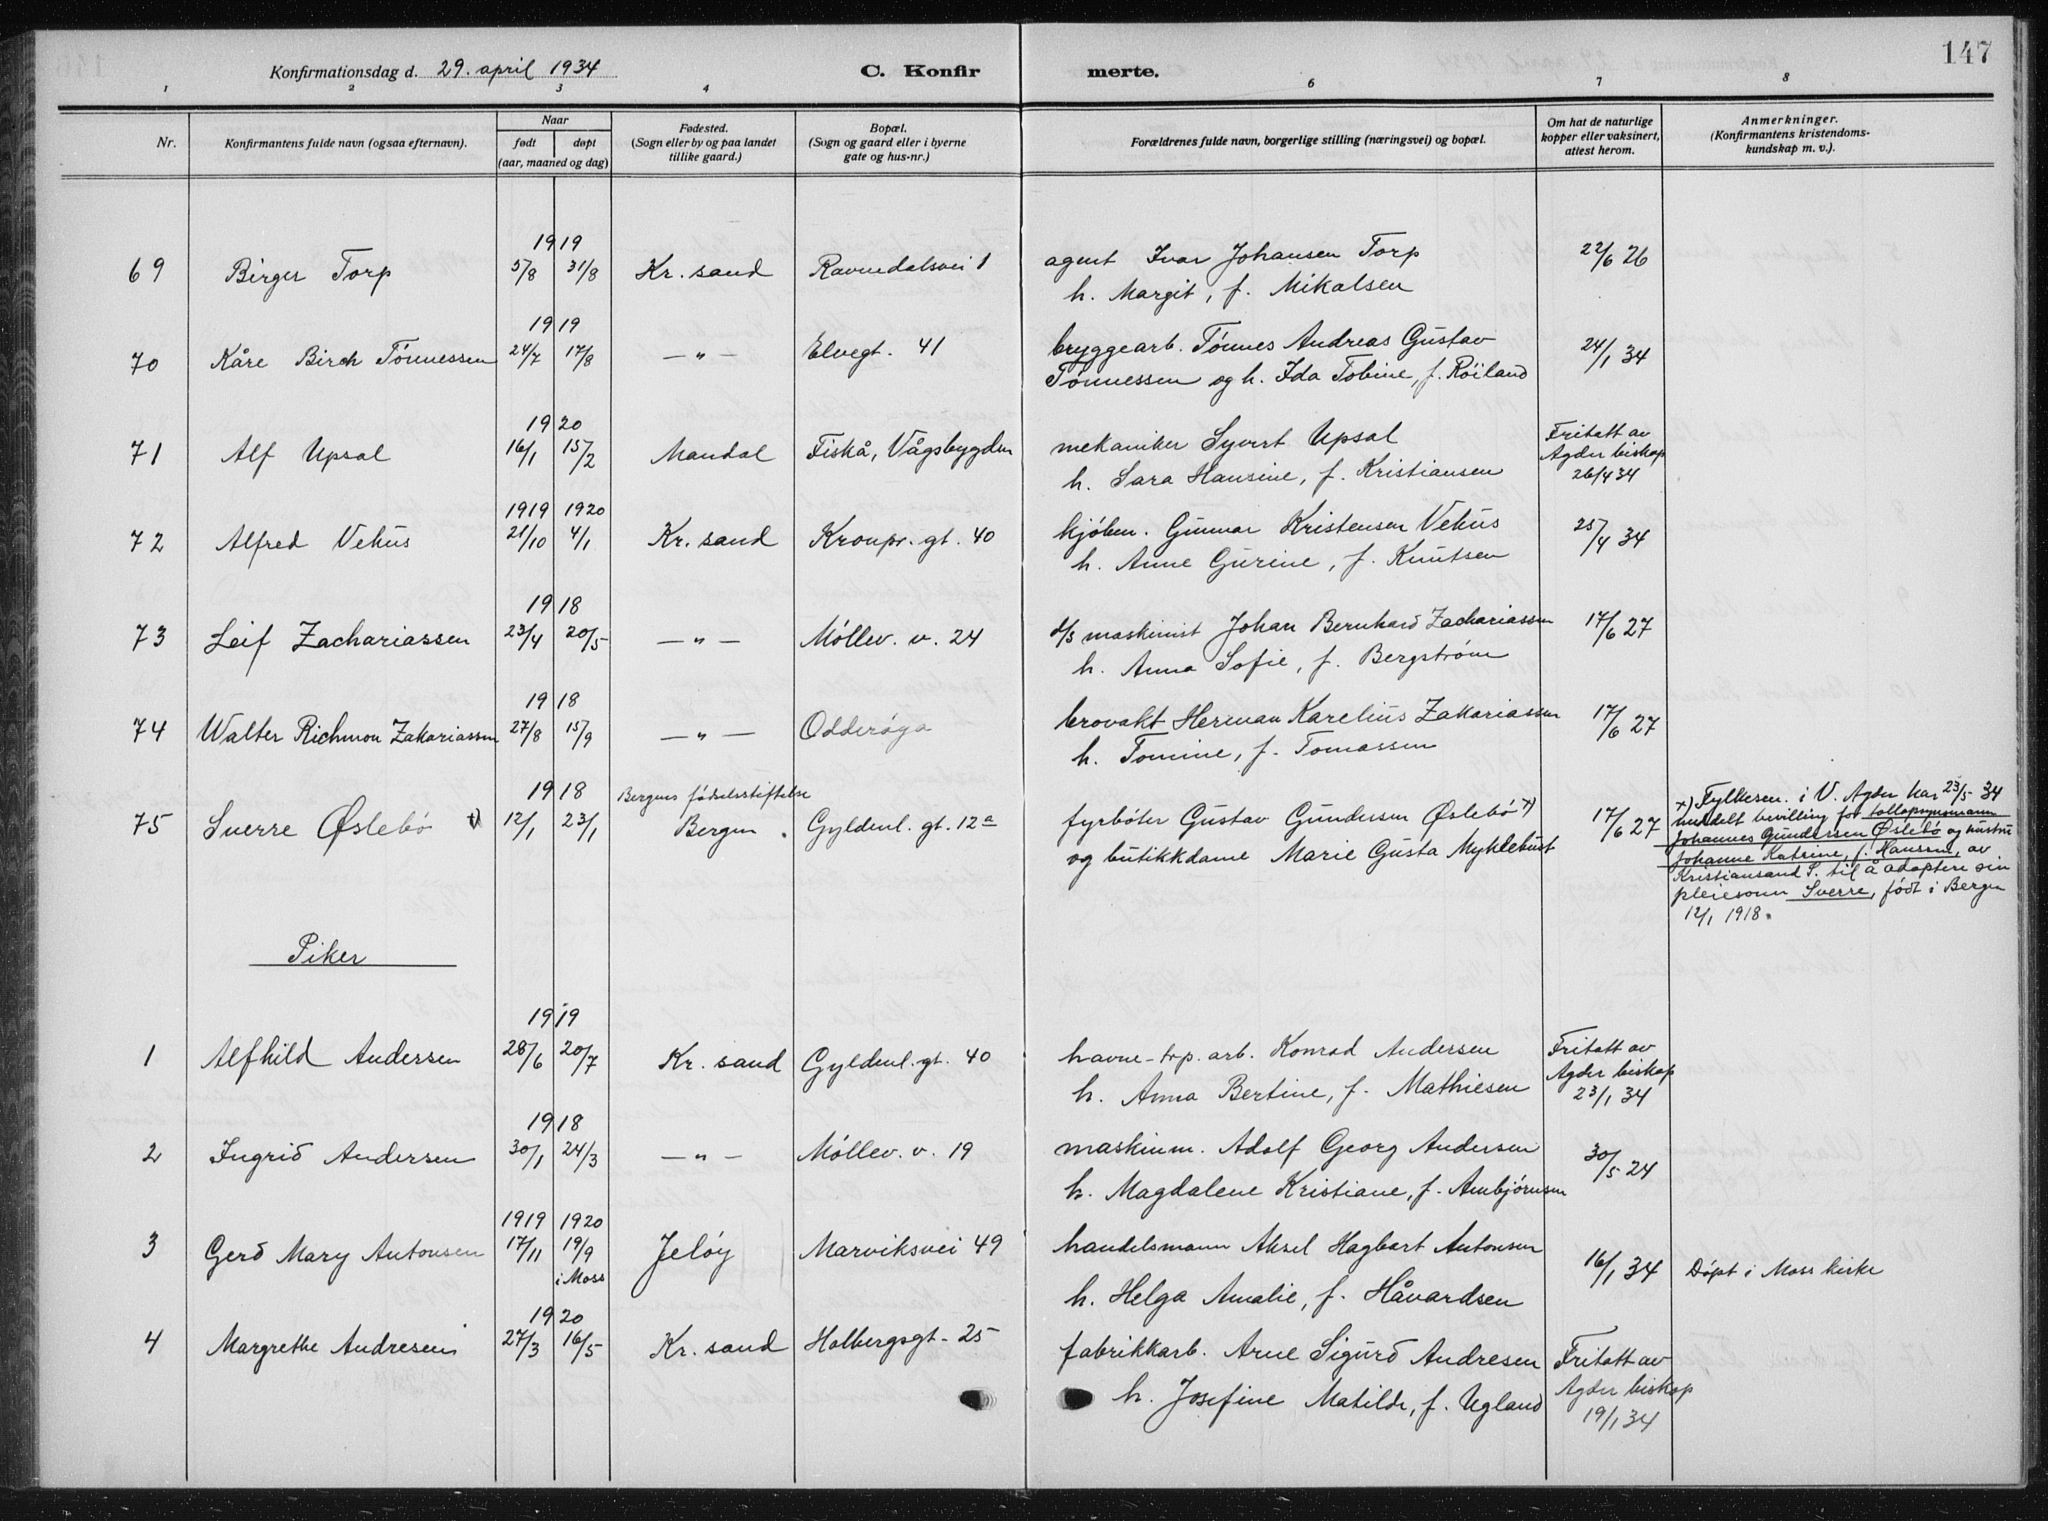 147
Konfirmationsdag d. 29. april 1934 C. Konfir merte.
1 2 3 4 6 7 8
Nr. Konfirmantens fulde navn (ogsaa efternavn). Naar født døpt (aar, maaned og dag) Fødested. (Sogn eller by og paa landet tillike gaard.) Bopæl. (Sogn og gaard eller i byerne gate og hus-nr.) Forældrenes fulde navn, borgerlige stilling (næringsvei) og bopæl. Om hat de naturlige kopper eller vaksinert, attest herom. Anmerkninger. (Konfirmantens kristendoms- kundskap m. v.).
1919
69 Birger Torp 5/8 31/8 Kr. sand Ravnedalsvei 1 agent Ivar Johansen Torp 22/6 26
h. Margit, f. Mikalsen
1919
70 Kåre Birch Tönnessen 24/7 17/8 —"— Elvegt. 41 bryggearb. Tönnes Andreas Gustav 24/1 34
Tönnessen og h. Ida Tobine, f. Röiland
1920
71 Alf Upsal 16/1 15/2 Mandal Fiskå, Vågsbygden mekaniker Syvert Upsal Fritatt av
h. Sara Hansine, f. Kristiansen Agder biskop
26/4 34
1919 1920
72 Alfred Vehus 21/10 4/1 Kr. sand Kronpr. gt. 40 kjöbm. Gunnar Kristensen Vehus 25/4 34
h. Anne Gurine, f. Knutsen
1918
73 Leif Zachariassen 23/4 20/5 —"— Möllev. v. 24 d/s maskinist Johan Bernhard Zachariassen 17/6 27
h. Anna Sofie, f. Bergström
1918
74 Walter Richmon Zakariassen 27/8 15/9 —"— Odderöya brovakt Herman Karelius Zakariassen 17/6 27
h. Tomine, f. Tomassen
1918 Bergens födselsstiftelse
75 Sverre Øslebö x) 12/1 23/1 Bergen. Gyldenl. gt. 12a fyrböter Gustav Gundersen Øslebö x) 17/6 27
og butikkdame Marie Gusta Myklebust
x) Fylkesm. i V. Agder har 23/5 34
meddelt bevilling for tollopsynsmann
Johannes Gundersen Øslebö og hustru
Johanne Katrine, f. Hansen, av
Kristiansand S. til å adoptere sin
pleiesønn Sverre, födt i Bergen
12/1 1918.
Piker
1919
1 Alfhild Andersen 28/6 20/7 Kr. sand Gyldenl. gt. 40 havne-op. arb. Konrad Andersen Fritatt av
h. Anna Bertine, f. Mathiesen Agder biskop
23/1 34
1918
2 Ingrid Andersen 30/1 24/3 —"— Möllev. v. 19 maskinm. Adolf Georg Andersen 30/5 24
h. Magdalene Kristiane, f. Ambjörnsen
1919 1920
3 Gerd Mary Antonsen 17/11 19/9 Jelöy Marviksvei 49 handelsmann Aksel Hagbart Antonsen 16/1 34 Döpt i Moss kirke
i Moss
h. Helga Amalie, f. Håvardsen
1920
4 Margrethe Andresen 27/3 16/5 Kr. sand Holbergsgt. 25 fabrikkarb. Arne Sigurd Andresen Fritatt av
h. Josefine Matilde, f. Ugland Agder biskop
19/1 34